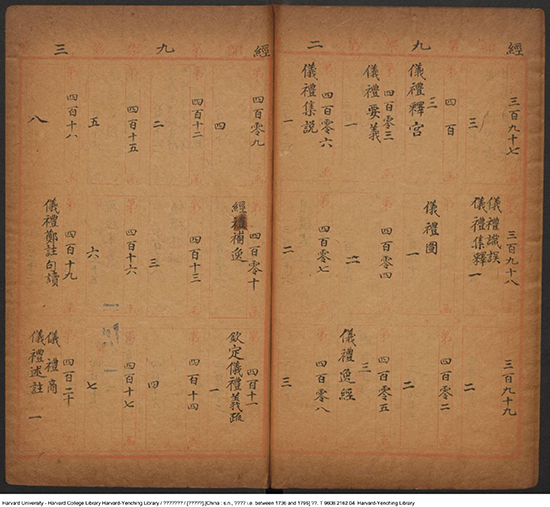 經 九 二
三百九十七
三
三百九十八
儀禮識誤
儀禮集釋 一
三百九十九
二
四百
三
儀禮釋宮
儀禮圖
一
四百零二
二
四百零三
儀禮要義 一
四百零四
二
四百零五
三
儀禮逸經
四百零六
儀禮集説 一
四百零七
二
四百零八
三
經 九 三
四百零九
四
四百零十
經禮補逸
四百十一
欽定儀禮義疏 一
四百十二
二
四百十三
三
四百十四
四
四百十五
五
四百十六
六
四百十七
七
四百十八
八
四百十九
儀禮鄭註句讀
四百二十
儀禮商
儀禮述註 一
Harvard University - Harvard College Library Harvard-Yenching Library / ??????? / [?????].[China : s.n., ???? i.e. between 1736 and 1795] ??. T 9608 2162.04 Harvard-Yenching Library